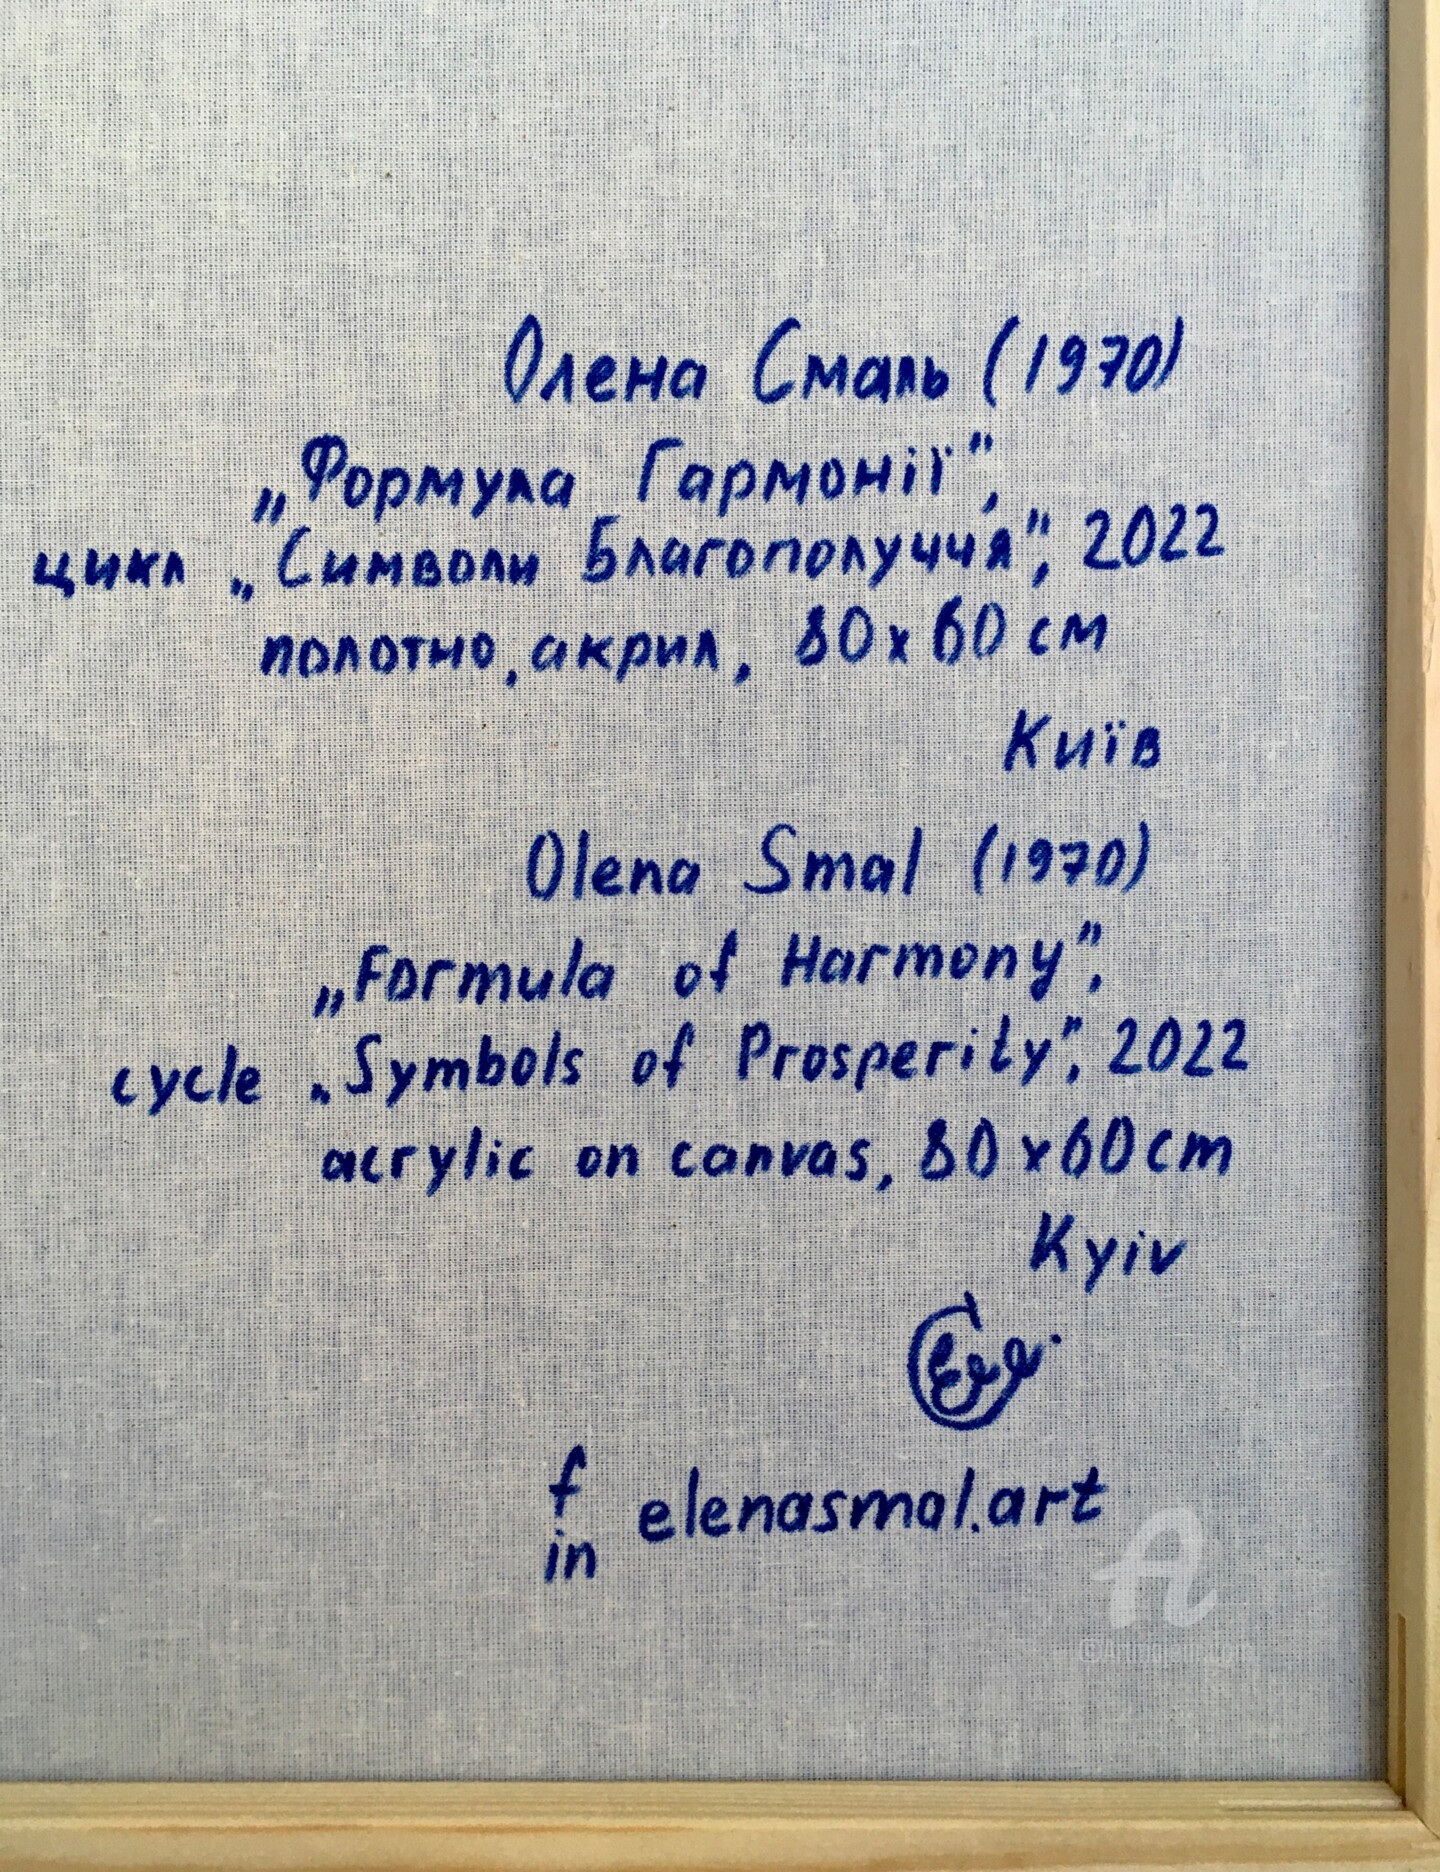 Олена Смаль (1970)
„Формула Гармонії”,
цикл „Символи Благополуччя”, 2022
полотно, акрил, 80х60 см
Київ
Olena Smal (1970)
„Formula of Harmony”,
cycle „Symbols of Prosperity”, 2022
acrylic on canvas, 80x60cm
Kyiv
f elenasmal.art
in